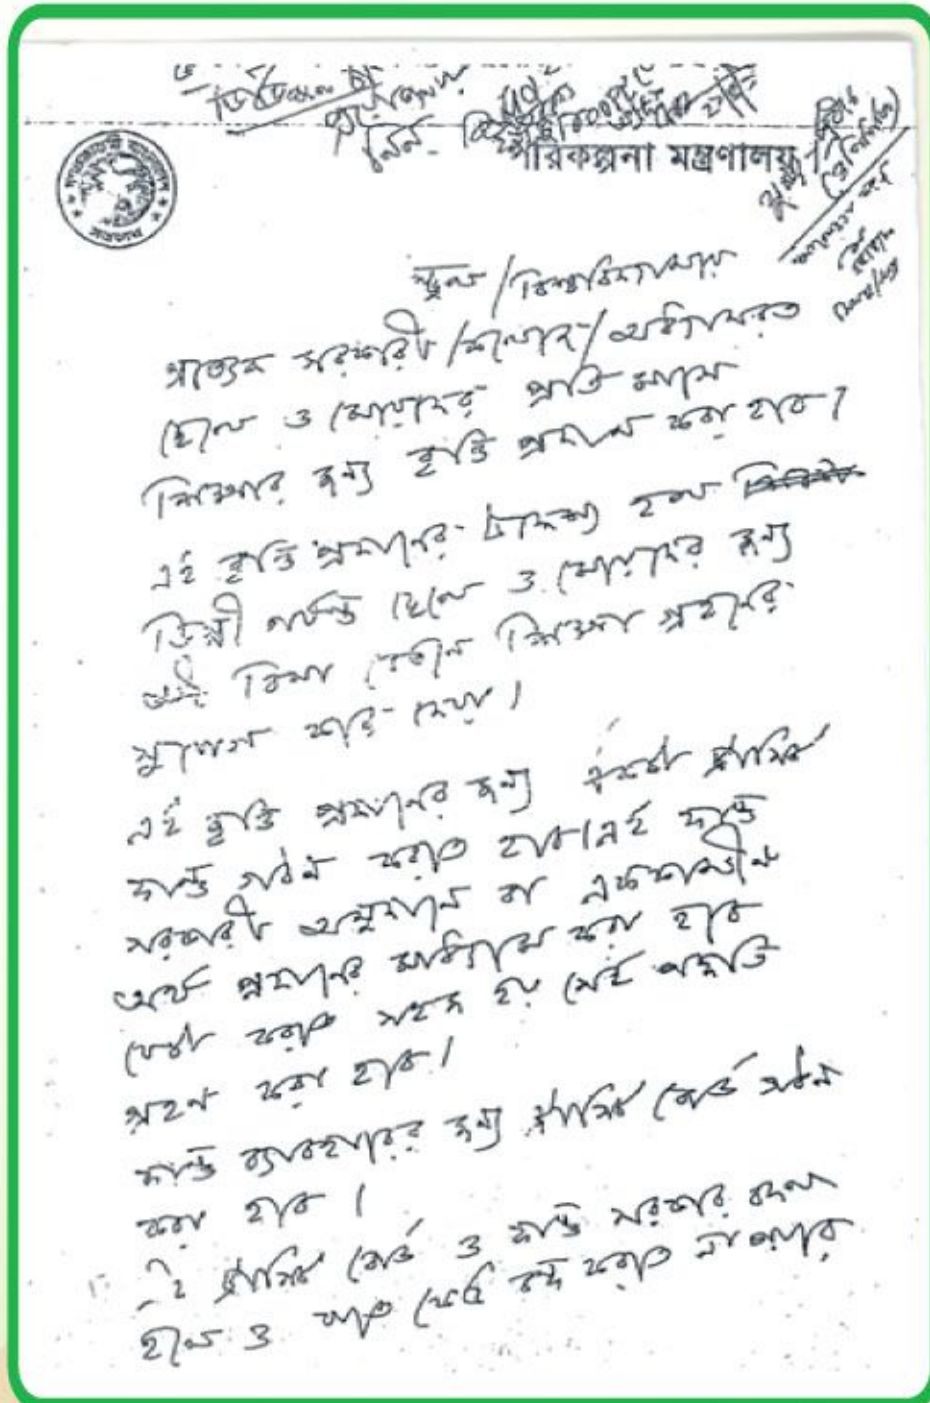 পরিকল্পনা মন্ত্রণালয়
স্কুল/বিশ্ববিদ্যালয়
প্রত্যেক সরকারী/কলেজে/অধ্যয়নরত
ছেলে ও মেয়েদের প্রতি মাসে
শিক্ষার জন্য বৃত্তি প্রদান করা হবে।
এই বৃত্তি প্রদানের উদ্দেশ্য হল
ডিগ্রী পর্যন্ত ছেলে ও মেয়েদের জন্য
বিনা বেতনে শিক্ষা গ্রহণের
সুযোগ করে দেয়া।
এই বৃত্তি প্রদানের জন্য একটা ট্রাস্টি
ফান্ড গঠন করতে হবে। এই ফান্ড
সরকারী অনুদানে বা এককালীন
অর্থ প্রদানের মাধ্যমে করা হবে
যেটা করতে সহজ হয় সেই পদ্ধতি
গ্রহণ করা হবে।
ফান্ড ব্যবহারের জন্য ট্রাস্টি বোর্ড গঠন
করা হবে।
এই ট্রাস্টি বোর্ড ও ফান্ড সরকার বদল
হলে ও যাতে কেউ বন্ধ করতে না পারে